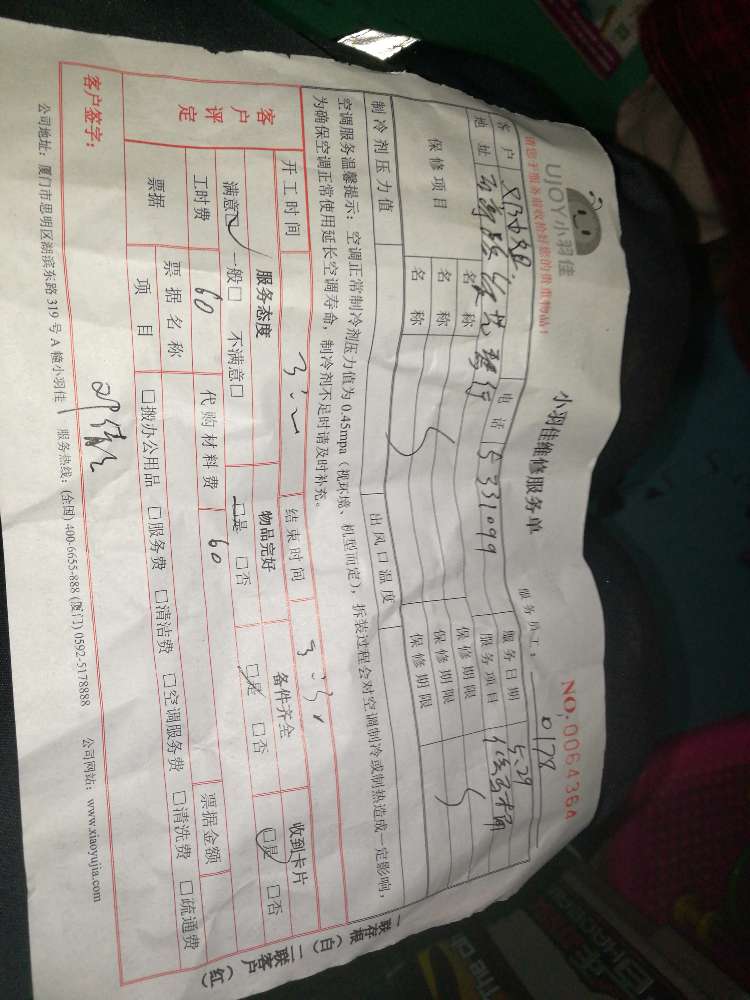 UJOY小羽佳
小羽佳维修服务单
NO:0064364
请您于服务前收拾好您的贵重物品!
服务员工: 0178
客户 电话 5331099 服务日期 5.29
地址 服务项目
保修项目 名称 保修期限
名称 保修期限
名称 保修期限
制冷剂压力值 出风口温度
空调服务温馨提示:空调正常制冷剂压力值为 0.45mpa(视环境、机型而定),拆装过程会对空调制冷或制热造成一定影响,
为确保空调正常使用延长空调寿命,制冷剂不足时请及时补充。
开工时间 结束时间
客户评定 服务态度 物品完好 备件齐全 收到卡片
满意□ 一般□ 不满意□ □是 □否 □是 □否 □是 □否
工时费 60 代购材料费 60 票据金额
票据 票据名称
项目 □搬办公用品 □服务费 □清洁费 □空调服务费 □清洗费 □疏通费
客户签字:
公司地址:厦门市思明区湖滨东路 319 号 A 幢小羽佳 服务热线:(全国) 400-6655-888 (厦门) 0592-5178888 公司网站:www.xiaoyujia.com
一联存根(白) 二联客户(红)